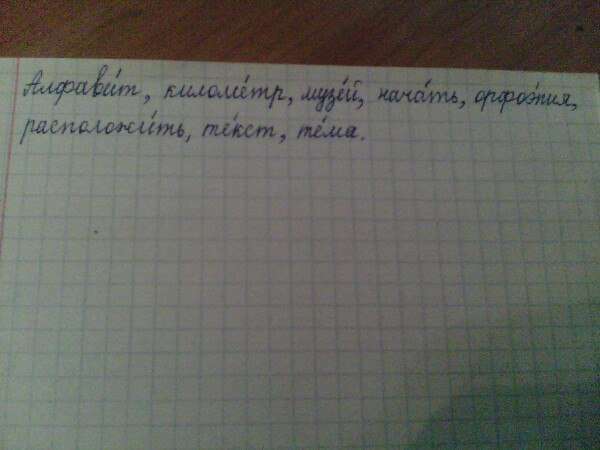 Алфави́т, киломе́тр, музе́й, нача́ть, орфоэ́пия,
расположи́ть, те́кст, те́ма.